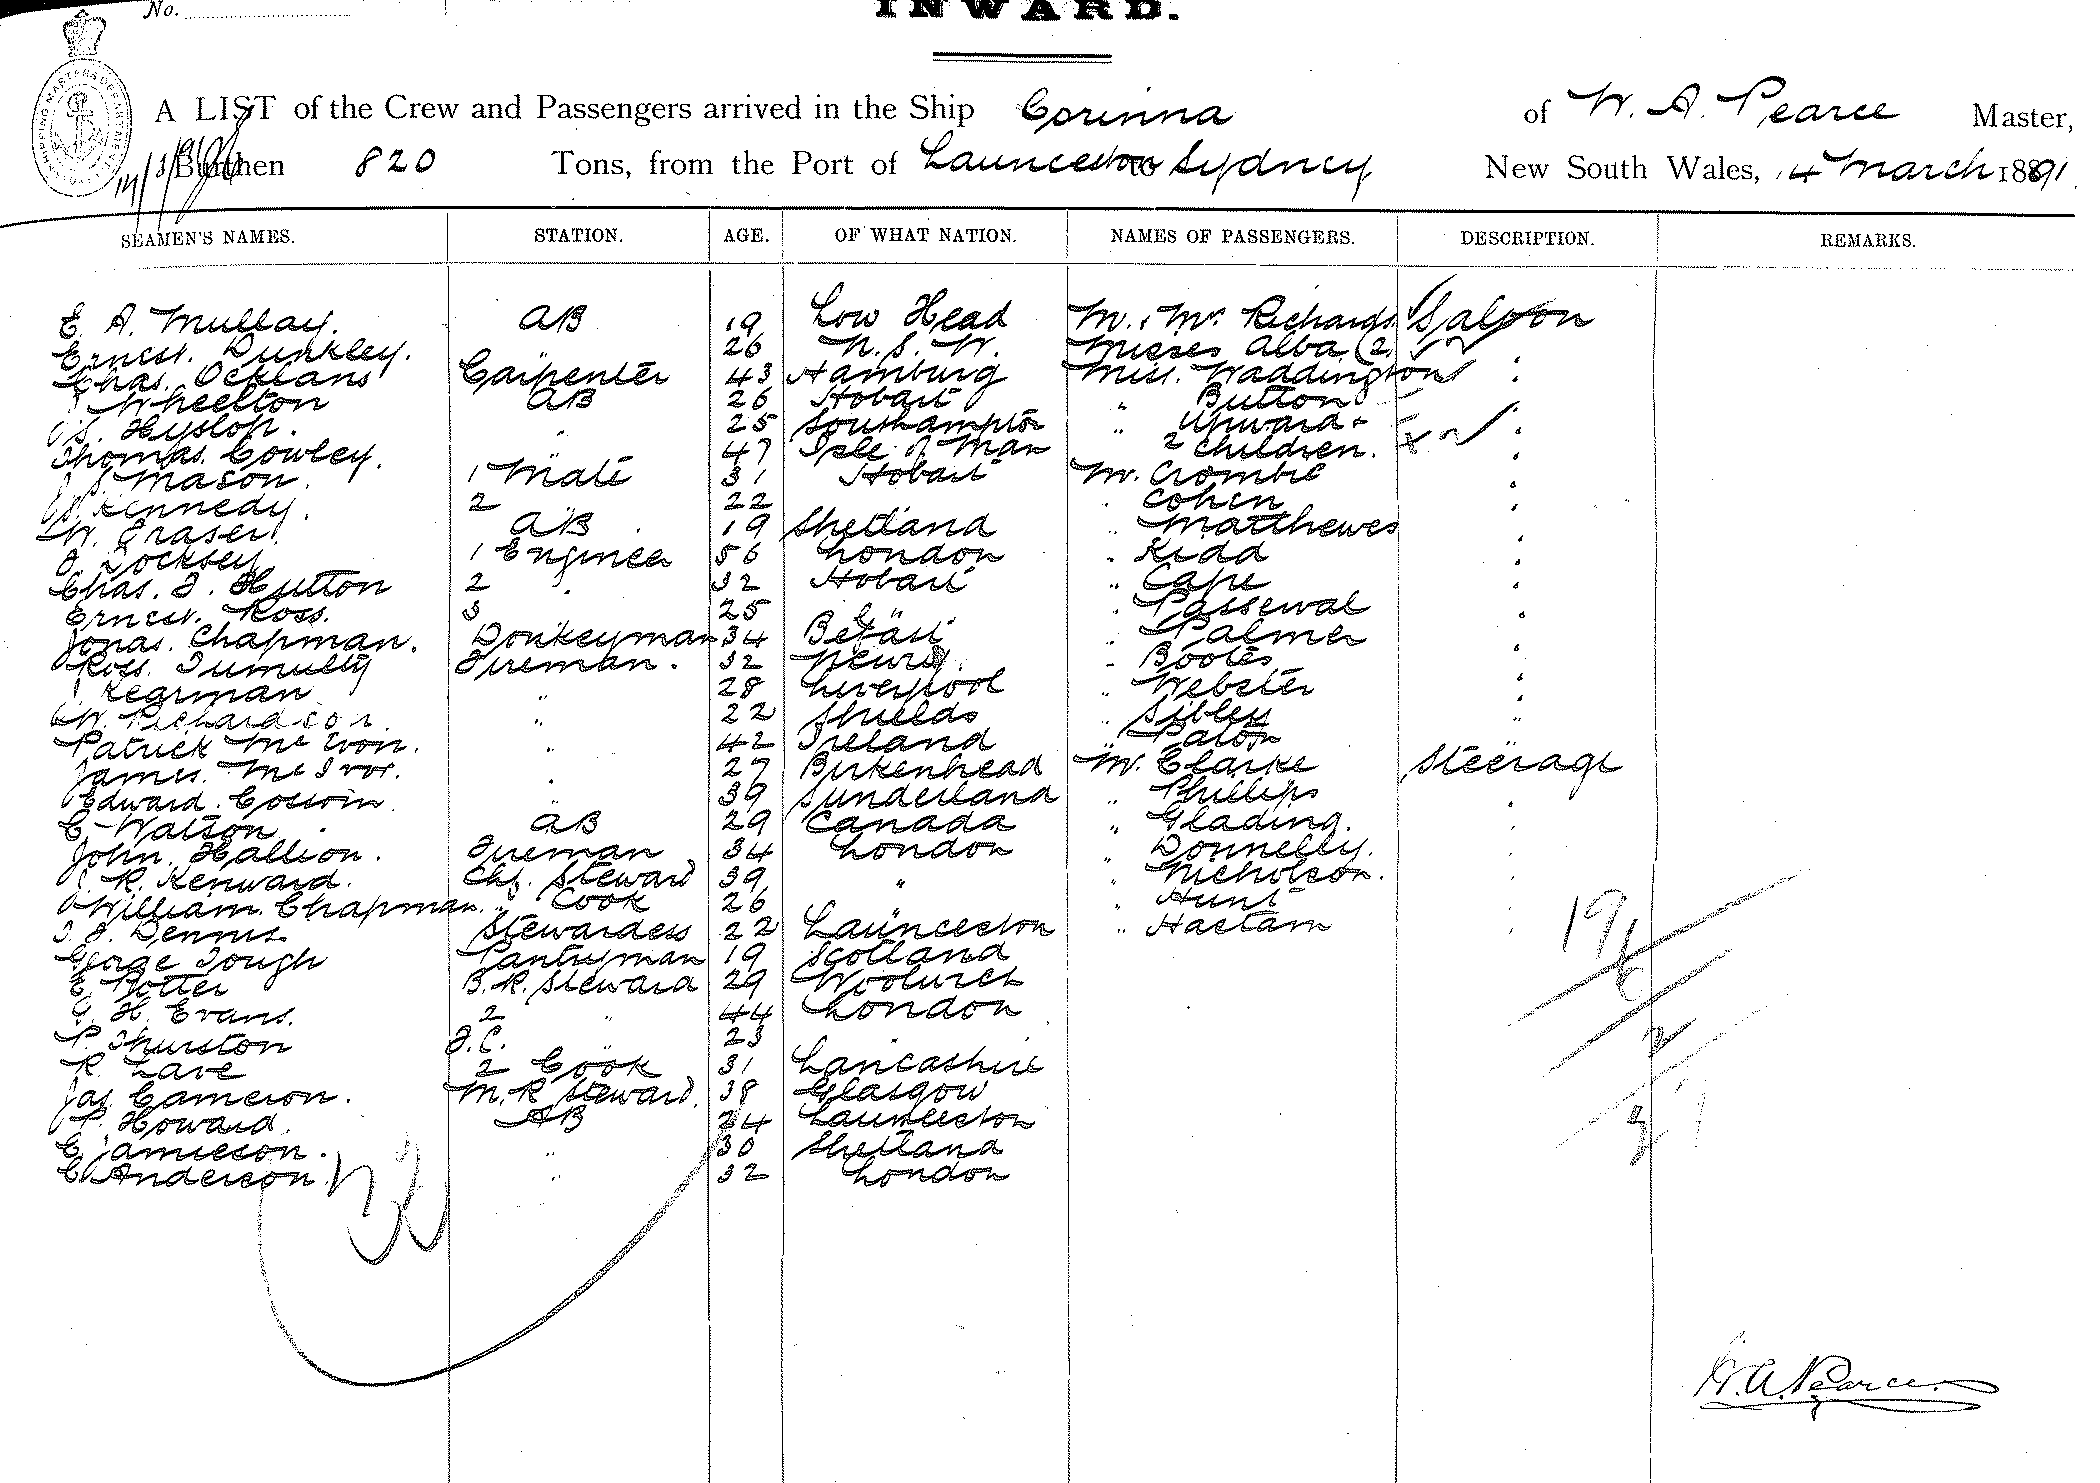 No.
INWARD.
A LIST of the Crew and Passengers arrived in the Ship Corinna of W. A. Pearce Master,
Burthen 820 Tons, from the Port of Launceston to Sydney New South Wales, 4 March 1891
SEAMEN'S NAMES. STATION. AGE. OF WHAT NATION. NAMES OF PASSENGERS. DESCRIPTION. REMARKS.
E. A. Mullay. AB 19 Low Head M. & Mrs Richards Saloon
Ernest. Dunkley. 26 N. S. W. Misses Alba (2)
Chas. Ocklans Carpenter 43 Hamburg Miss. Waddington "
J Wheelton AB 26 Hobart " Button
J S. Hyslop. " 25 Southampton " Upward & "
Thomas. Cowley. 47 Isle of Man 2 Children.
J S. Mason. 1 Mate 31 Hobart Mr. Crombie "
Kennedy. 2 22 " Cohen "
W. Fraser. AB 19 Shetland " Matthewes
J. Docksey 1 Engineer 56 London " Kidd "
Chas. J. Hutton 2 " 32 Hobart " Cape "
Ernest. Ross. 3 25 " " Passewal "
Jonas. Chapman. Donkeyman 34 Belfast " Palmer "
Ross. Tumulty Fireman. 32 Newry. " Bootes "
J Kearman " 28 Liverpool " Webster "
W. Richardson " 22 Shields " Sibley "
Patrick McIvor. " 42 Ireland " Paton
James. McIvor. " 27 Birkenhead Mr. Clarke Steerage
Edward. Coswin " 39 Sunderland " Phillips "
C. Watson AB 29 Canada " Glading. "
John. Hallion. Fireman 34 London " Donnelly. "
J. R. Kenward. Chf. Steward 39 " " Nicholson. "
William. Chapman. " Cook 26 " " Hunt "
J. J. Dennis Stewardess 22 Launceston " Haetam "
George Tough Pantryman 19 Scotland
E. Potter B.R. Steward 29 Woolwich
G. H. Evans. 2 " 44 London
P. Thurston F.C. " 23
R Lave 2 Cook 31 Lancashire
Jas Cameron. M.R Steward. 38 Glasgow
P. Howard. AB 24 Launceston
E Jamieson. " 30 Shetland
C Anderson. " 32 London
19
6
2
W. A. Pearce.